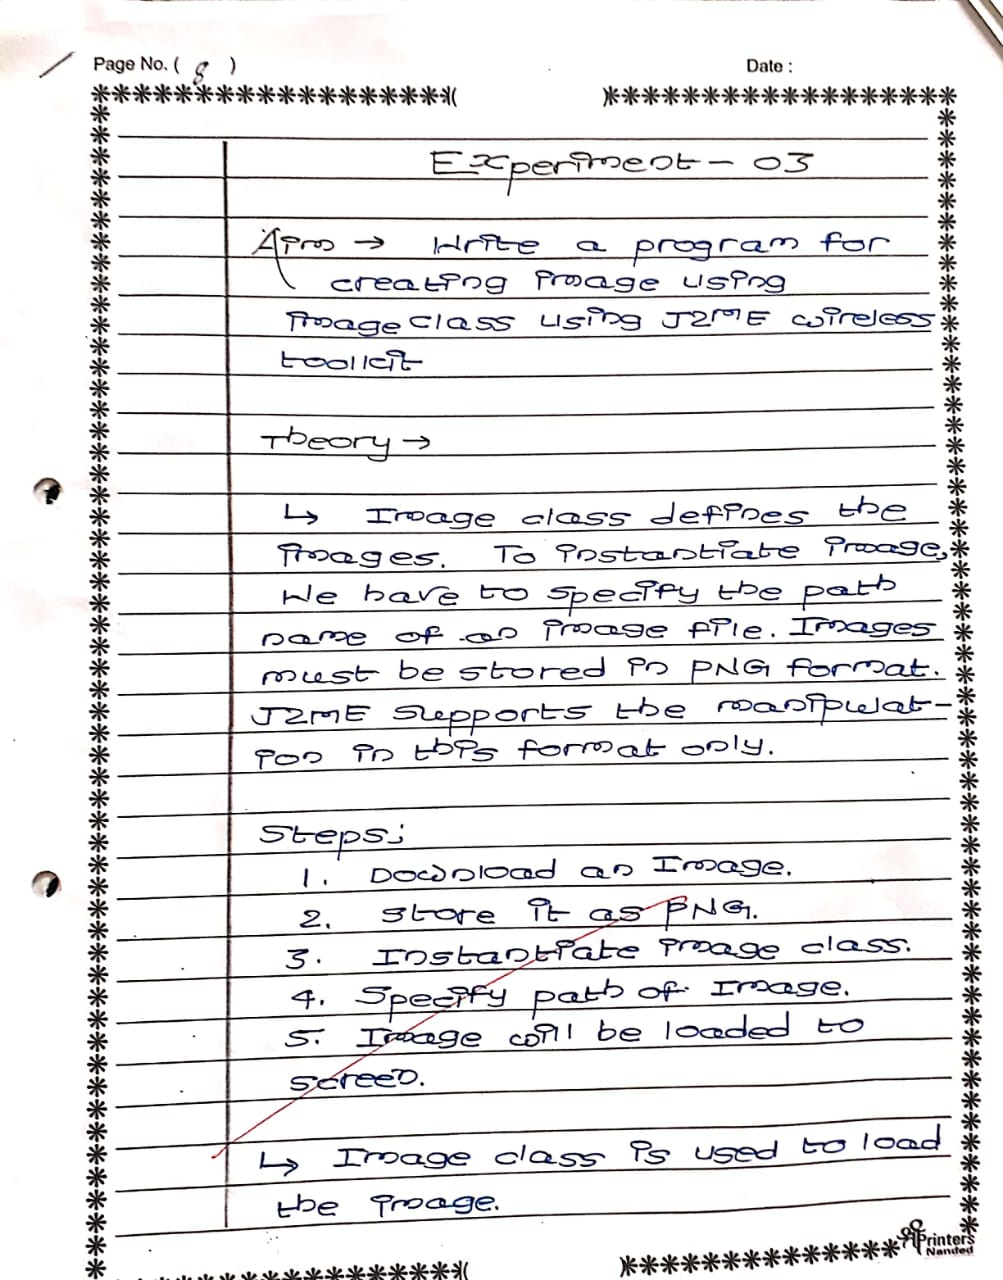 Page No. ( 8 )
Date :
Experiment - 03
Aim → Write a program for
creating image using
Image class using J2ME wireless
toolkit
Theory →
↳ Image class defines the
images. To instantiate image,
We have to specify the path
name of an image file. Images
must be stored in PNG format.
J2ME supports the manipulat-
ion in this format only.
Steps:
1. Download an Image.
2. Store it as PNG.
3. Instantiate image class.
4. Specify path of Image.
5. Image will be loaded to
screen.
↳ Image class is used to load
the image.
Printers
Nanded